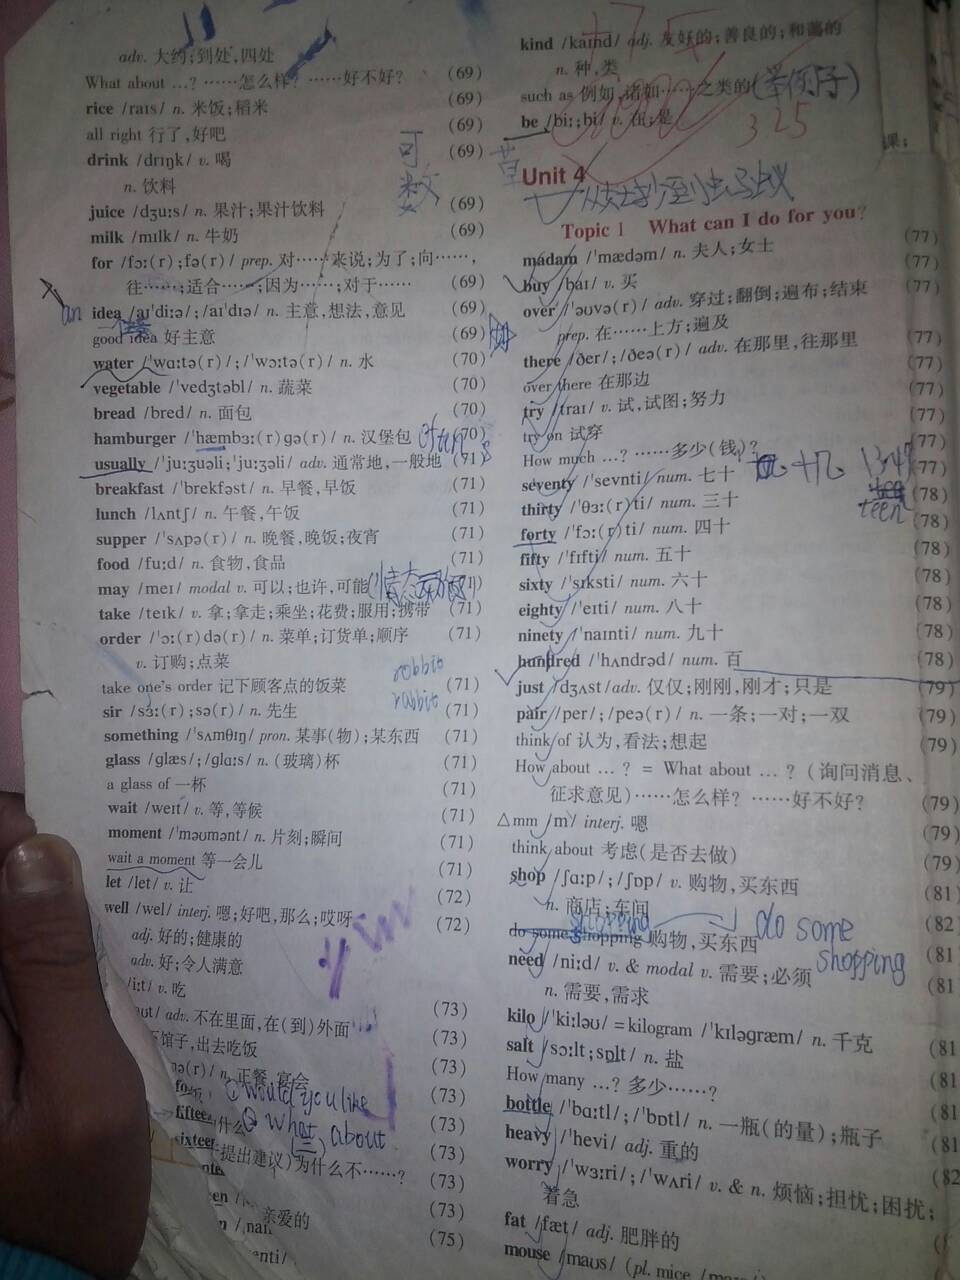 adv. 大约;到处,四处
What about …? ……怎么样? ……好不好? (69)
rice /raɪs/ n. 米饭;稻米 (69)
all right 行了,好吧 (69)
drink /drɪŋk/ v. 喝 (69)
n. 饮料
可
数
juice /dʒuːs/ n. 果汁;果汁饮料 (69)
milk /mɪlk/ n. 牛奶 (69)
for /fɔː(r);fə(r)/ prep. 对……来说;为了;向……,
往……;适合……;因为……;对于…… (69)
an
idea /aɪˈdiːə/;/aɪˈdɪə/ n. 主意,想法,意见 (69)
good idea 好主意 (69)
water /ˈwɑːtə(r)/;/ˈwɔːtə(r)/ n. 水 (70)
vegetable /ˈvedʒtəbl/ n. 蔬菜 (70)
bread /bred/ n. 面包 (70)
hamburger /ˈhæmbɜː(r)ɡə(r)/ n. 汉堡包 (70)
often
usually /ˈjuːʒuəli;ˈjuːʒəli/ adv. 通常地,一般地 (71)
breakfast /ˈbrekfəst/ n. 早餐,早饭 (71)
lunch /lʌntʃ/ n. 午餐,午饭 (71)
supper /ˈsʌpə(r)/ n. 晚餐,晚饭;夜宵 (71)
food /fuːd/ n. 食物,食品 (71)
may /meɪ/ modal v. 可以;也许,可能 (情态动词)
take /teɪk/ v. 拿;拿走;乘坐;花费;服用;携带 (71)
order /ˈɔː(r)də(r)/ n. 菜单;订货单;顺序 (71)
v. 订购;点菜
robbit
take one's order 记下顾客点的饭菜 (71)
rabbit
sir /sɜː(r);sə(r)/ n. 先生 (71)
something /ˈsʌmθɪŋ/ pron. 某事(物);某东西 (71)
glass /ɡlæs/;/ɡlɑːs/ n. (玻璃)杯 (71)
a glass of 一杯 (71)
wait /weɪt/ v. 等,等候 (71)
moment /ˈməʊmənt/ n. 片刻;瞬间 (71)
wait a moment 等一会儿 (71)
let /let/ v. 让 (72)
well /wel/ interj. 嗯;好吧,那么;哎呀 (72)
adj. 好的;健康的
adv. 好;令人满意
/iːt/ v. 吃
adv. 不在里面,在(到)外面 (73)
馆子,出去吃饭 (73)
n. 正餐,宴会 (73)
① would you like (73)
② what about
什么 (73)
提出建议)为什么不……? (73)
(73)
亲爱的 (73)
(75)
kind /kaɪnd/ adj. 友好的;善良的;和蔼的
n. 种,类
such as 例如,诸如……之类的 (举例子)
be /biː;bi/ v. 在;是
325
课:
Unit 4
Topic 1 What can I do for you?
madam /ˈmædəm/ n. 夫人;女士 (77)
buy /baɪ/ v. 买 (77)
over /ˈəʊvə(r)/ adv. 穿过;翻倒;遍布;结束 (77)
prep. 在……上方;遍及
there /ðer/;/ðeə(r)/ adv. 在那里,往那里 (77)
over there 在那边 (77)
try /traɪ/ v. 试,试图;努力 (77)
try on 试穿 (77)
How much …? ……多少(钱)? (77)
seventy /ˈsevnti/ num. 七十 (77)
teen
thirty /ˈθɜː(r)ti/ num. 三十 (78)
forty /ˈfɔː(r)ti/ num. 四十 (78)
fifty /ˈfɪfti/ num. 五十 (78)
sixty /ˈsɪksti/ num. 六十 (78)
eighty /ˈeɪti/ num. 八十 (78)
ninety /ˈnaɪnti/ num. 九十 (78)
hundred /ˈhʌndrəd/ num. 百 (78)
just /dʒʌst/ adv. 仅仅;刚刚,刚才;只是 (79)
pair /per/;/peə(r)/ n. 一条;一对;一双 (79)
think of 认为,看法;想起 (79)
How about …? = What about …? (询问消息、
征求意见)……怎么样? ……好不好? (79)
△mm /m/ interj. 嗯 (79)
think about 考虑(是否去做) (79)
shop /ʃɑːp/;/ʃɒp/ v. 购物,买东西 (81)
n. 商店;车间
shopping
do some shopping 购物,买东西 (82
do some
shopping
need /niːd/ v. & modal v. 需要;必须 (81
n. 需要,需求
kilo /ˈkiːləʊ/ = kilogram /ˈkɪləɡræm/ n. 千克 (81
salt /sɔːlt;sɒlt/ n. 盐 (81
How many …? 多少……? (81
bottle /ˈbɑːtl/;/ˈbɒtl/ n. 一瓶(的量);瓶子 (81
heavy /ˈhevi/ adj. 重的 (81
worry /ˈwɜːri/;/ˈwʌri/ v. & n. 烦恼;担忧;困扰; (82
着急
fat /fæt/ adj. 肥胖的
mouse /maʊs/ (pl. mice